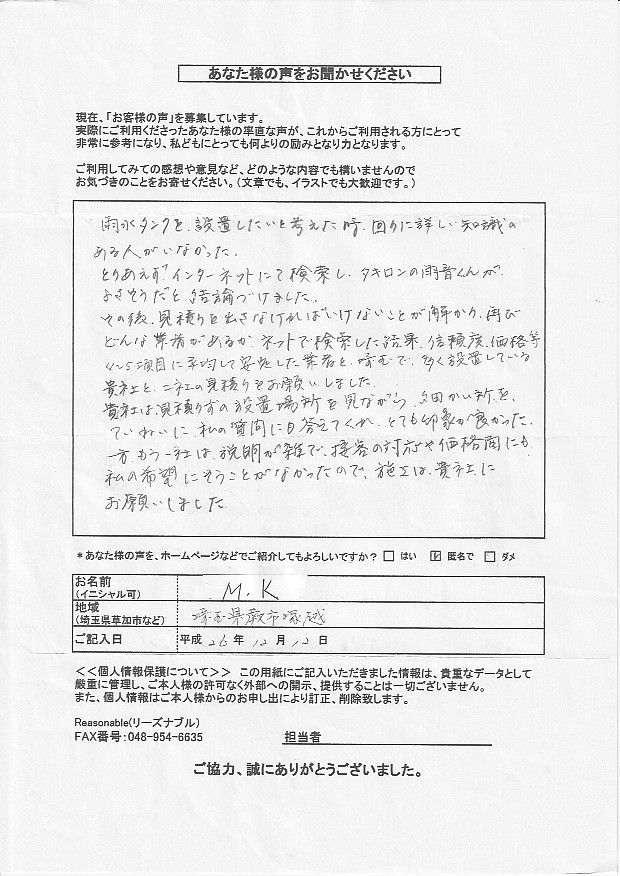 あなた様の声をお聞かせください
現在、「お客様の声」を募集しています。
実際にご利用くださったあなた様の率直な声が、これからご利用される方にとって
非常に参考になり、私どもにとっても何よりの励みとなり力となります。
ご利用してみての感想や意見など、どのような内容でも構いませんので
お気づきのことをお寄せください。(文章でも、イラストでも大歓迎です。)
雨水タンクを、設置したいと考えた時、回りに詳しい知識の
ある人がいなかった。
とりあえず インターネットにて検索し、タキロンの雨音くんが、
よさそうだと、結論づけました。
その後、見積りを出さなければいけないことが解かり、再び
どんな業者があるか、ネットで検索した結果、信頼度、価格等
4〜5項目に平均して安定した業者と、埼玉で、多く設置している
貴社と、二社の見積りをお願いしました。
貴社は、見積り時の設置場所を見ながら、細かい所を、
ていねいに、私の質問にも答えてくれ、とても印象が良かった。
一方 もう一社は、説明が雑で、接客の対応や価格面にも、
私の希望にそうことがなかったので、施工は、貴社に
お願いしました。
*あなた様の声を、ホームページなどでご紹介してもよろしいですか? □ はい ☑ 匿名で □ ダメ
お名前
(イニシャル可) M.K
地域
(埼玉県草加市など) 埼玉県蕨市塚越
ご記入日 平成 26 年 12 月 12 日
<<個人情報保護について>> この用紙にご記入いただきました情報は、貴重なデータとして
厳重に管理し、ご本人様の許可なく外部への開示、提供することは一切ございません。
また、個人情報はご本人様からのお申し出により訂正、削除致します。
Reasonable(リーズナブル)
FAX番号:048-954-6635 担当者
ご協力、誠にありがとうございました。